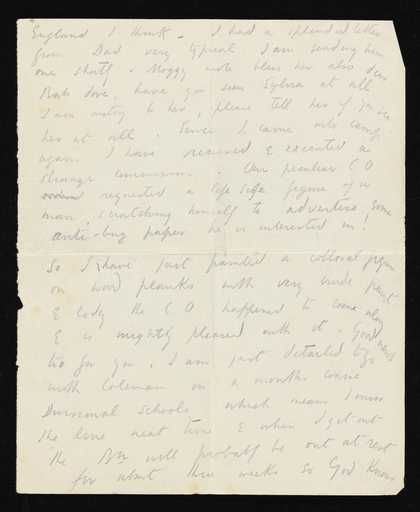 England I think - I had a splendid letter
from Dad very typical I am sending him
one shortly. Moggy wrote bless her also. Dear
Babs dove, have you seen Sylvia at all
I am writing to her, please tell her if you see
her at all. Since I came into camp
again I have received & executed a
strange commission. Our peculiar C O
requested a life size figure of a
man, scratching himself to advertise some
anti-bug paper he is interested in!
So I have just painted a colossal figure
on wood planks with very crude paint
& lo the C O happened to come along
& is mightily pleased with it. Good news
too for you. I am just detailed to go
with Coleman on a months course
Divisional Schools which means I miss
the line next time & when I get out
the Bn will probably be out at rest
for about three weeks so God knows